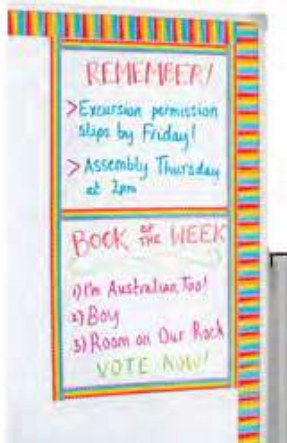 REMEMBER!
> Excursion permission
slips by Friday!
> Assembly Thursday
at 2pm
BOOK OF THE WEEK
1) I'm Australian Too!
2) Boy
3) Room on Our Rock
VOTE NOW!